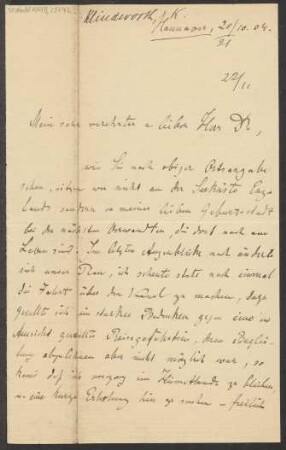 Klindworth, K.
Hannover, 20/10.04.
21
22/11
Mein sehr verehrter u. lieber Herr Dr,
wie Sie nach obiger Ortsangabe
sehen, sitzen wir nicht an der Seeküste Eng-
lands sondern in meiner lieben Geburtsstadt
bei den nächsten Verwandten, die dort noch am
Leben sind. Im letzten Augenblicke noch änderte
sich unser Plan, ich scheute stets noch einmal
die Fahrt über den Kanal zu machen, dazu
gesellte sich ein starkes Bedenken gegen eine in
Aussicht gestellte Reisegefährtin, deren Beglei-
tung abzulehnen aber nicht möglich war, so
kam es daß ich vorzog im Heimatlande zu bleiben
u. eine kurze Erholung hier zu suchen – freilich